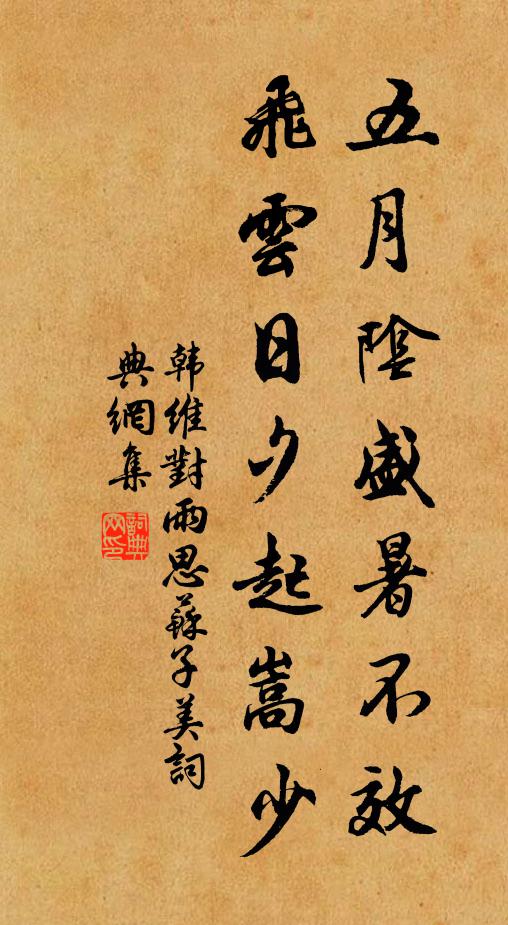 五月陰盛暑不效
飛雲日夕起嵩少
韩維對雨思蘇子美詞
典網集
詞典
网印